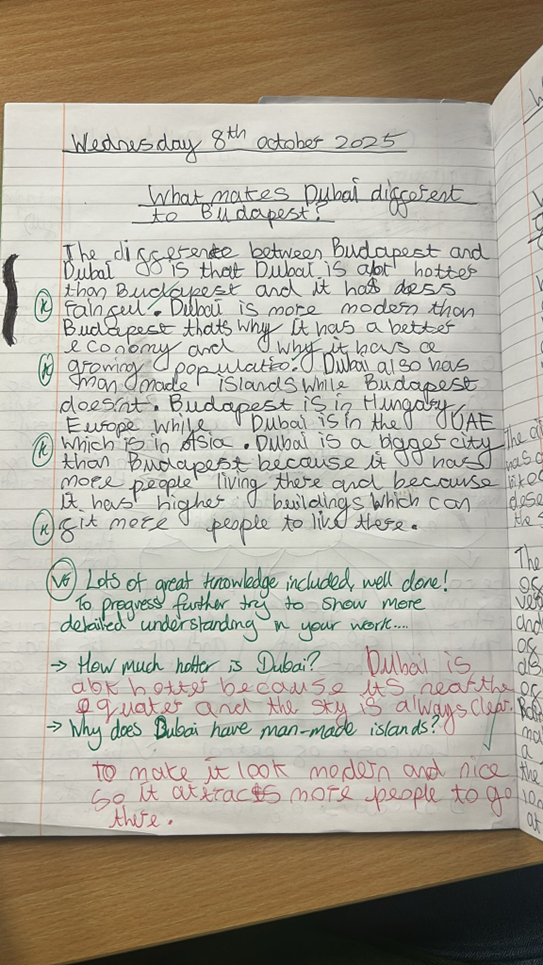 Wednesday 8th October 2025
What makes Dubai different
to Budapest?
The difference between Budapest and
Dubai is that Dubai is alot hotter
than Budapest and it has less
rainfull. Dubai is more modern than
Budapest thats why it has a better
economy and why it has a
growing population. Dubai also has
man made islands while Budapest
doesint. Budapest is in Hungary,
Europe while Dubai is in the UAE
which is in Asia. Dubai is a bigger city
than Budapest because it has
more people living there and because
it has higher buildings which can
fit more people to live there.
K
K
K
K
VF Lots of great knowledge included, well done!
To progress further try to show more
detailed understanding in your work....
→ How much hotter is Dubai? Dubai is
alot hotter because its near the
equater and the sky is always clear.
→ Why does Dubai have man-made islands?
To make it look modern and nice
so it attracts more people to go
there.